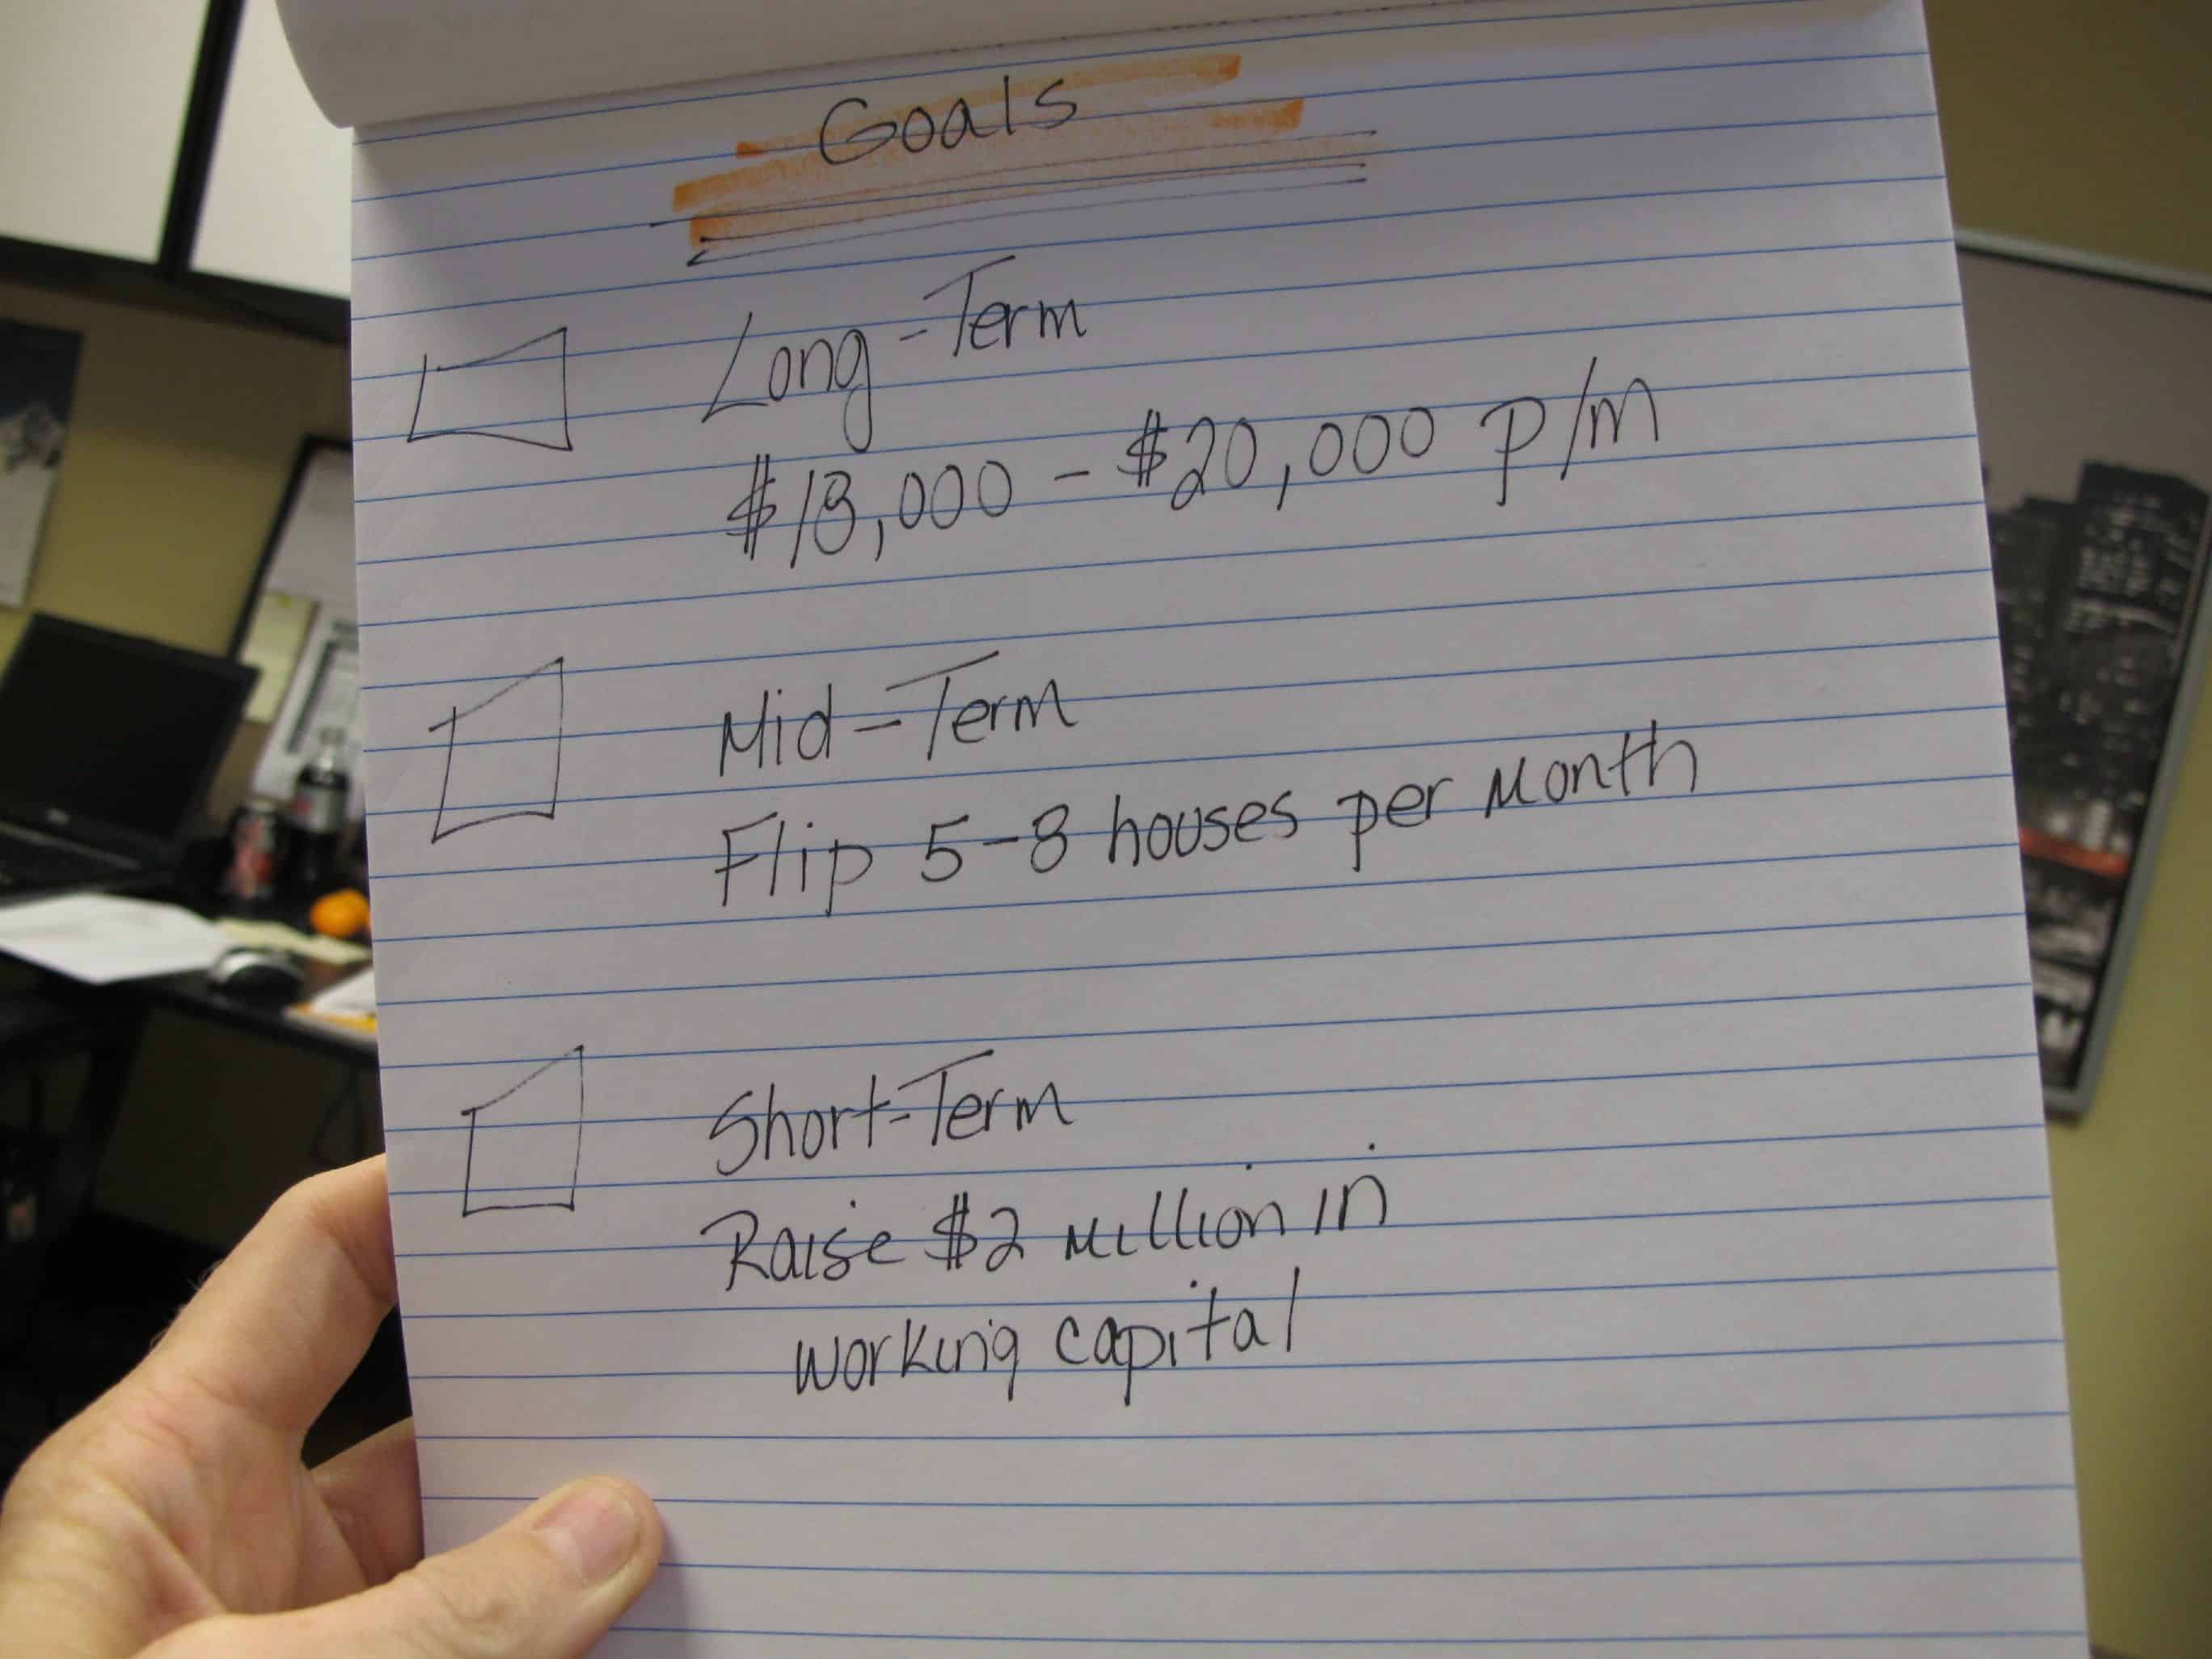 Goals
Long-Term
$18,000 - $20,000 P/M
Mid-Term
Flip 5-8 houses per Month
Short-Term
Raise $2 Million in
working capital